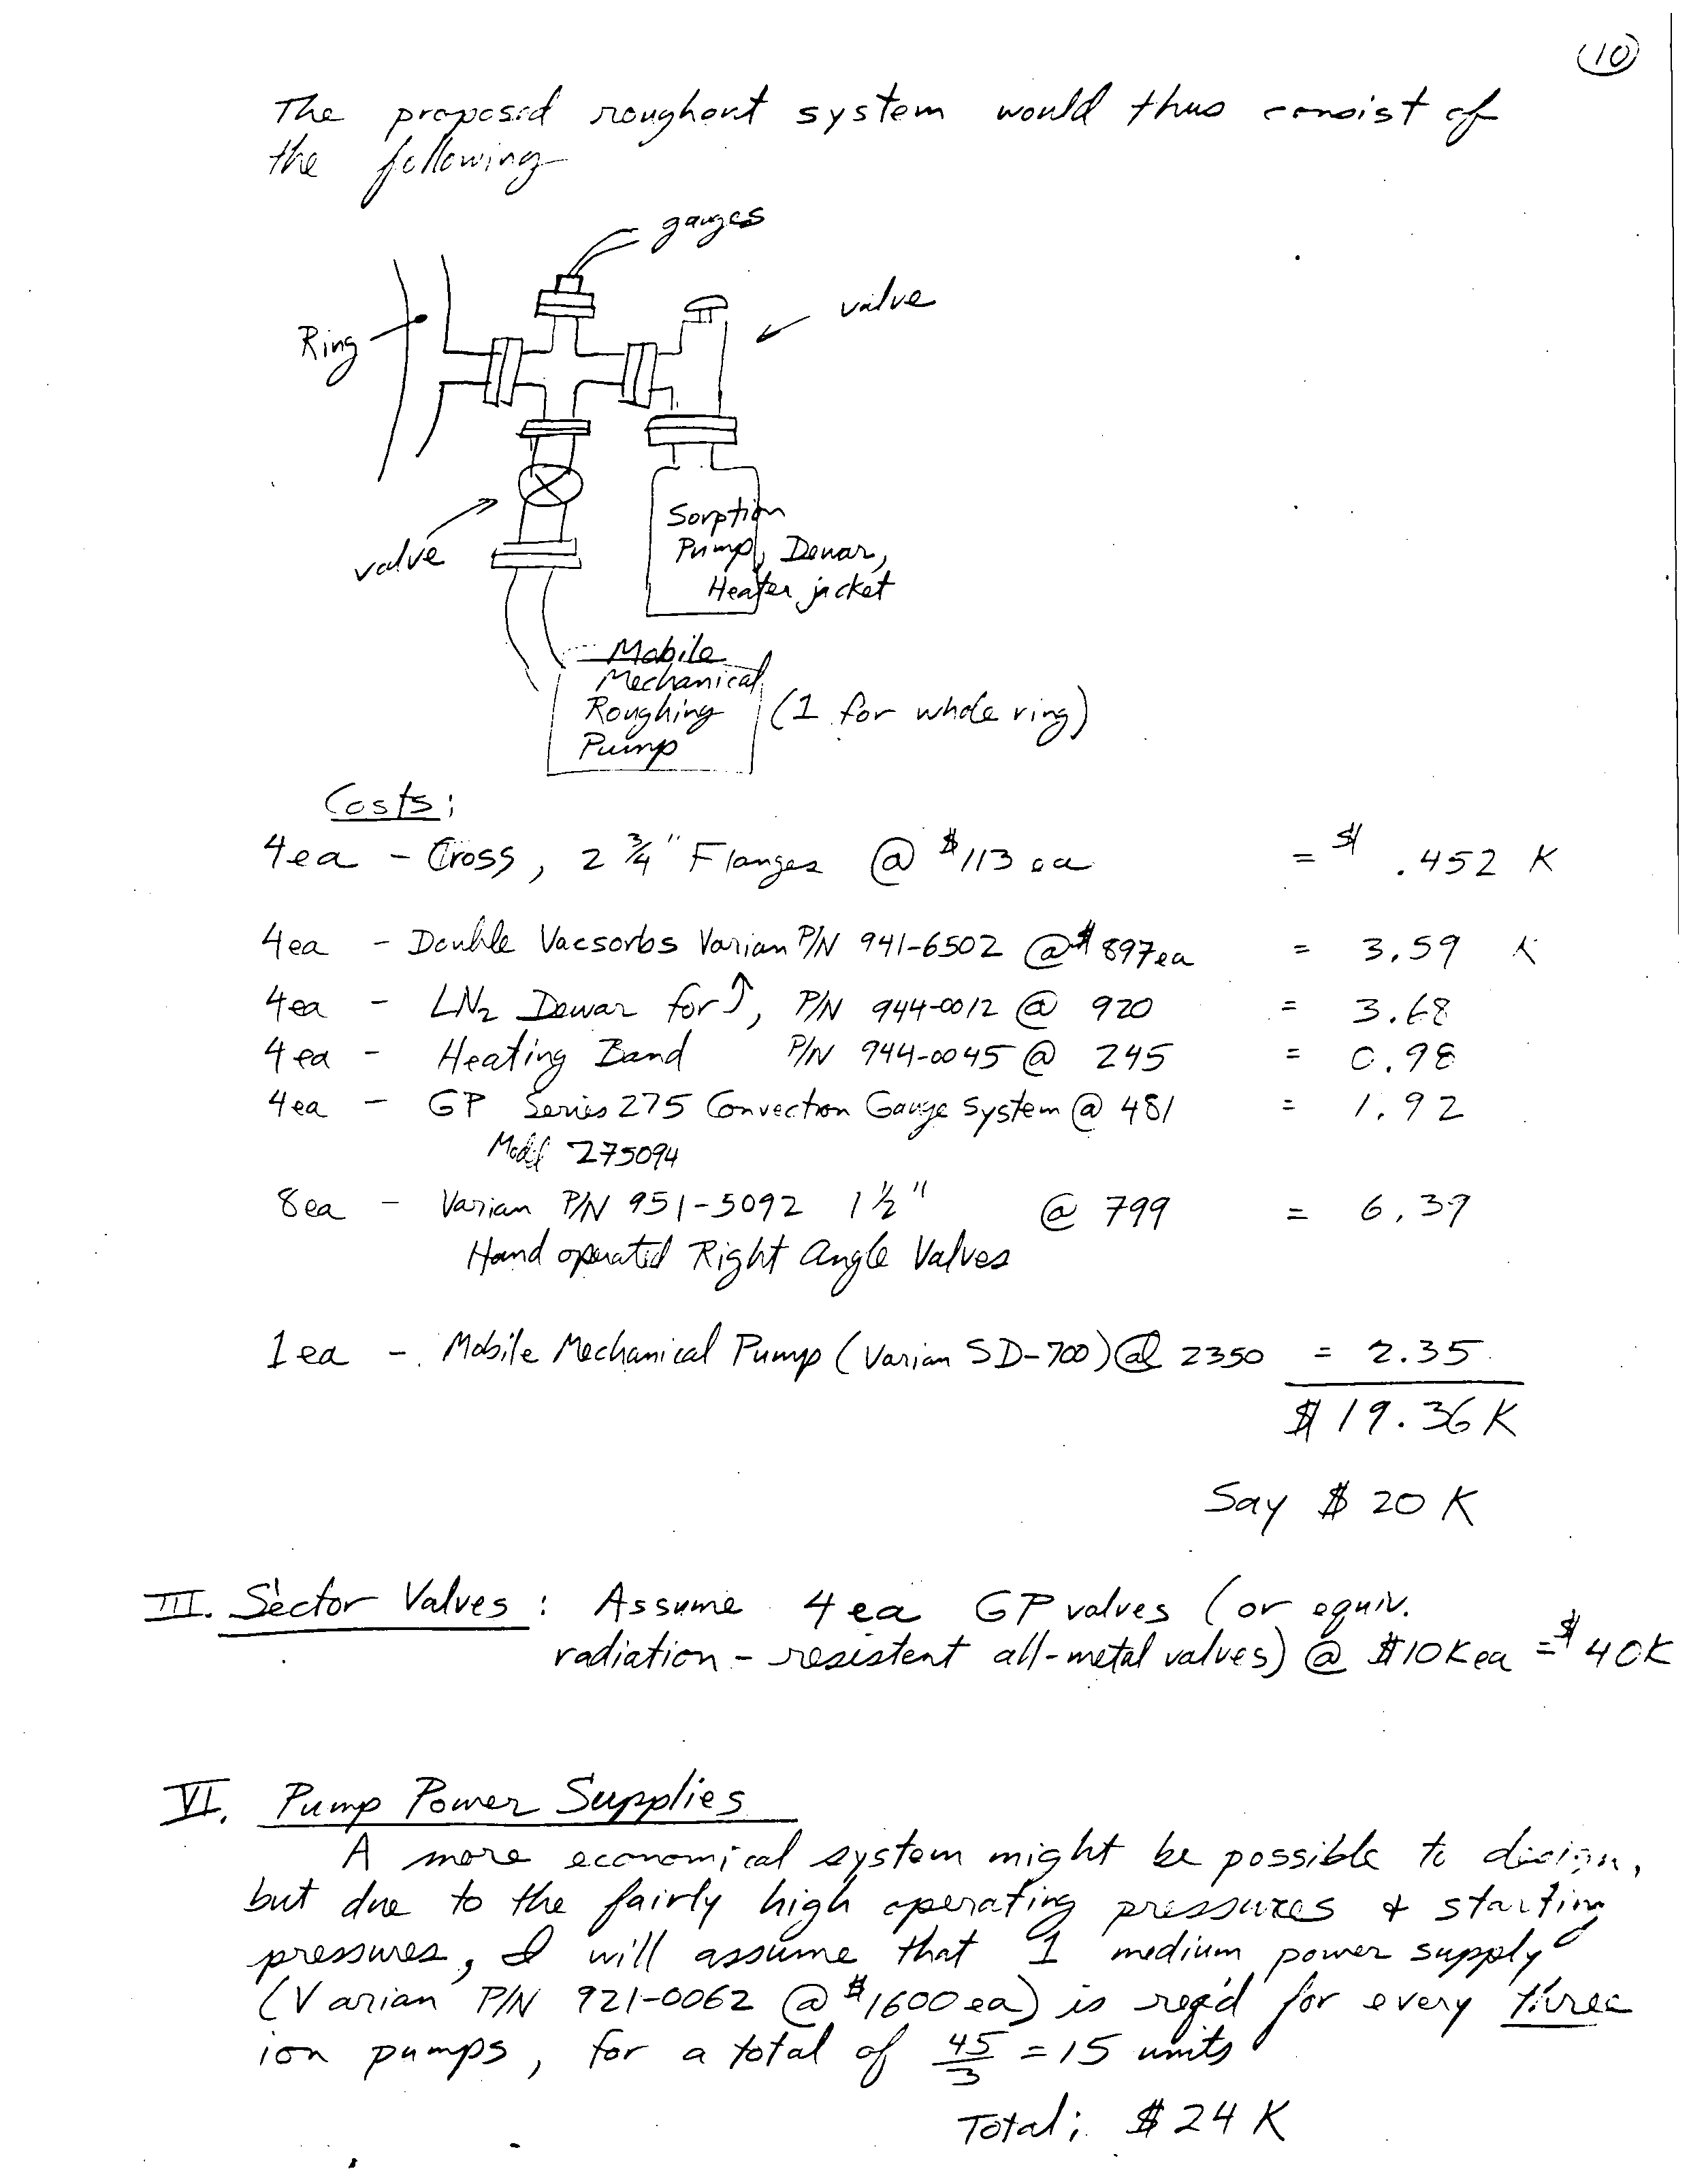 10
The proposed roughout system would thus consist of
the following
gauges
valve
Ring
valve
Sorption
Pump, Dewar,
Heater jacket
Mobile
Mechanical
Roughing
Pump
(1 for whole ring)
Costs:
4ea - Cross, 2 3/4" Flanges @ $113 ea = $ .452 K
4ea - Double Vacsorbs Varian P/N 941-6502 @ $897ea = 3.59 K
4ea - LN2 Dewar for ↑, P/N 944-0012 @ 920 = 3.68
4ea - Heating Band P/N 944-0045 @ 245 = 0.98
4ea - GP Series 275 Convection Gauge System @ 481 = 1.92
Model 275094
8ea - Varian P/N 951-5092 1 1/2" @ 799 = 6.39
Hand operated Right Angle Valves
1ea - Mobile Mechanical Pump (Varian SD-700) @ 2350 = 2.35
$19.36K
Say $20K
III. Sector Valves: Assume 4ea GP valves (or equiv.
radiation-resistent all-metal valves) @ $10K ea = $40K
VI. Pump Power Supplies
A more economical system might be possible to design,
but due to the fairly high operating pressures & starting
pressures, I will assume that 1 medium power supply
(Varian P/N 921-0062 @ $1600 ea) is req'd for every three
ion pumps, for a total of 45/3 = 15 units
Total: $24K